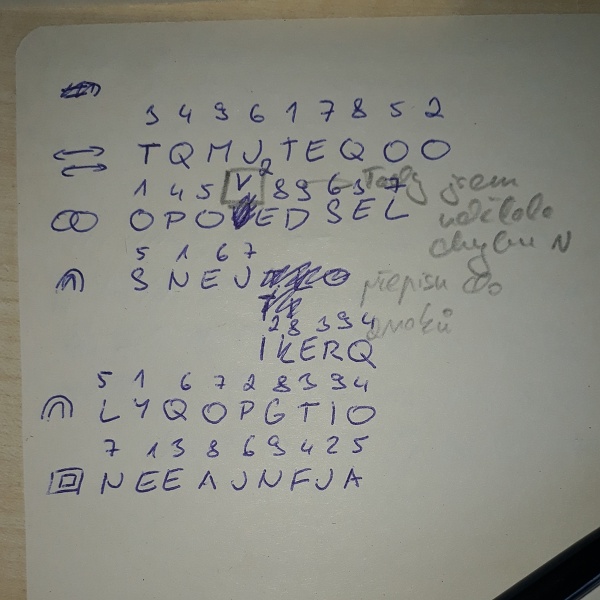 3 4 9 6 1 7 8 5 2
T Q M U T E Q O O
1 4 5 2 8 9 6 3 7
O P O V E D S E L
Tady jsem
udělala
chybu
5 1 6 7
S N E J
přepisu do
znaků
2 8 3 9 4
I K E R Q
5 1 6 7 2 8 3 9 4
L Y Q O P G T I O
7 1 3 8 6 9 4 2 5
N E E A J N F J A